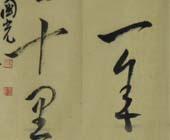 一年
十里
國光